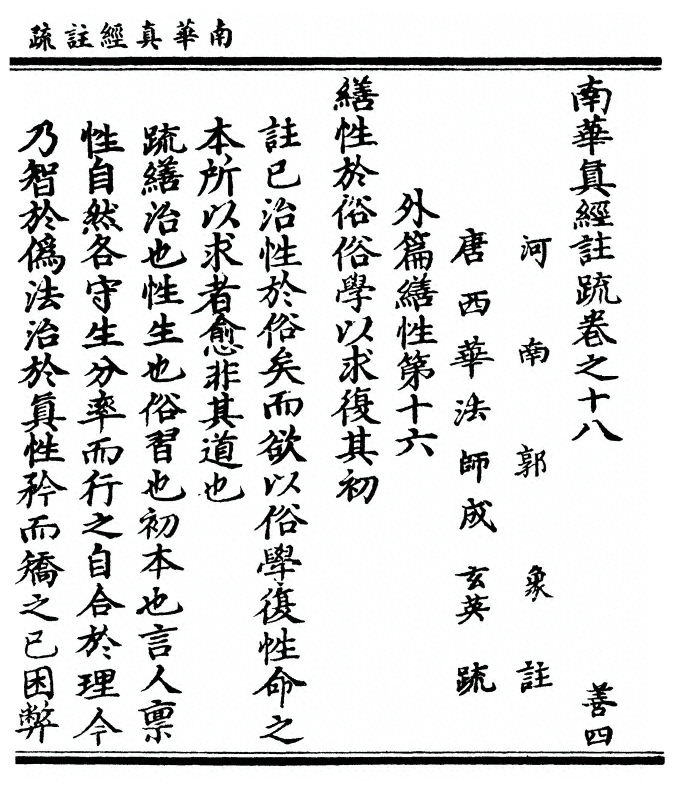 南華真經註疏
南華真經註疏卷之十八 善四
河南郭象註
唐西華法師成玄英疏
外篇繕性第十六
繕性於俗俗學以求復其初
註已治性於俗矣而欲以俗學復性命之
本所以求者愈非其道也
疏繕治也性生也俗習也初本也言人禀
性自然各守生分率而行之自合於理今
乃智於偽法治於真性矜而矯之已困弊